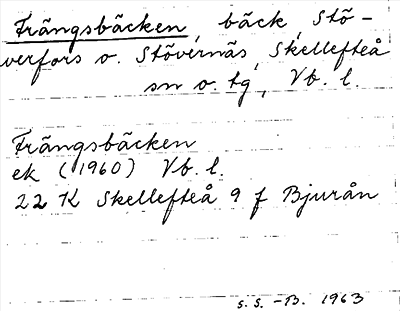 Trängsbäcken, bäck, Stö-
verfors o. Stövernäs, Skellefteå
sn o. tg, Vb. l.
Trängsbäcken
ek (1960) Vb. l.
22 K Skellefteå 9 f Bjurån
S. S. -B. 1963